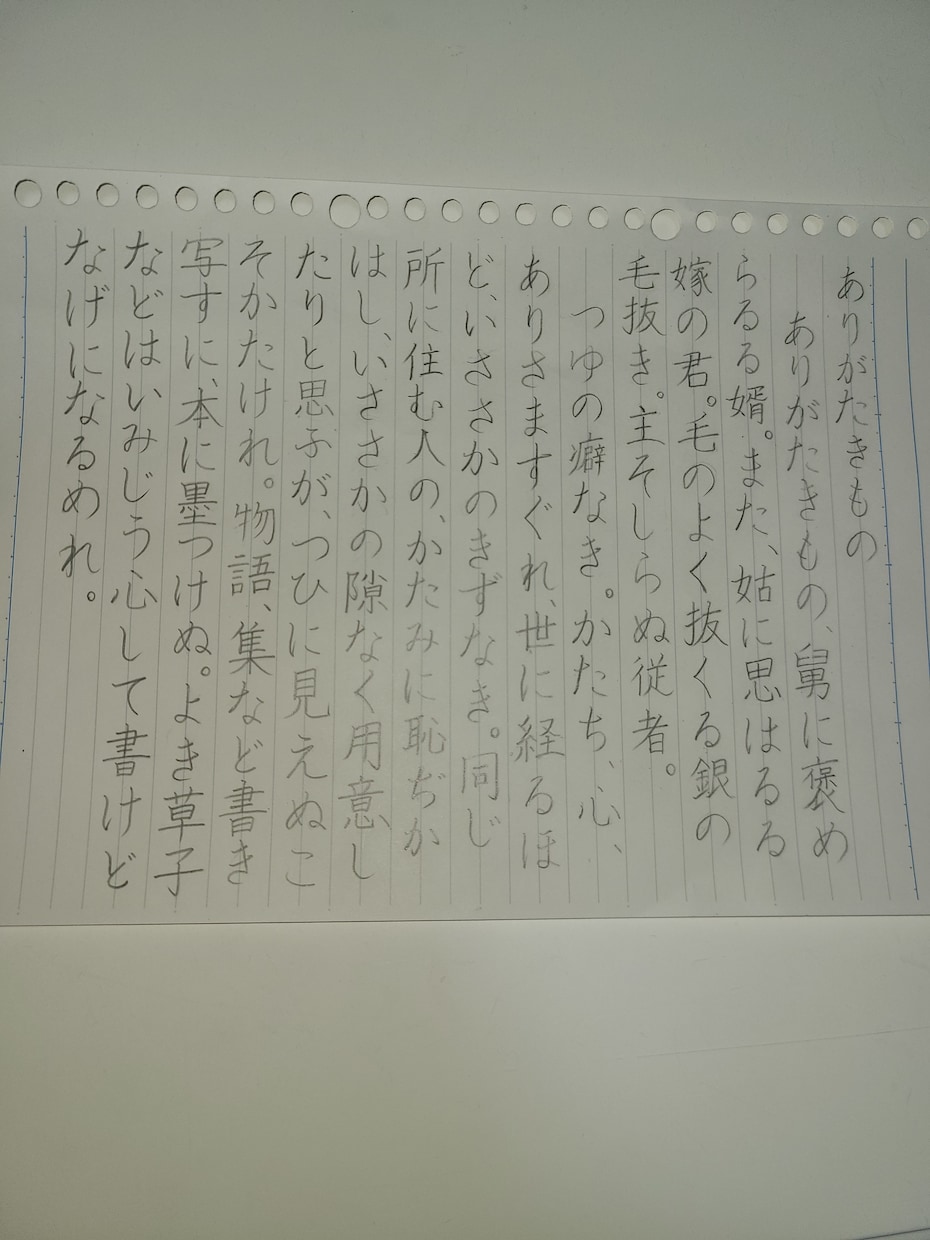 ありがたきもの
ありがたきもの、舅に褒め
らるる婿。また、姑に思はるる
嫁の君。毛のよく抜くる銀の
毛抜き。主そしらぬ従者。
つゆの癖なき。かたち、心、
ありさますぐれ、世に経るほ
ど、いささかのきずなき。同じ
所に住む人の、かたみに恥ぢか
はし、いささかの隙なく用意し
たりと思ふが、つひに見えぬこ
そかたけれ。物語、集など書き
写すに、本に墨つけぬ。よき草子
などはいみじう心して書けど
なげになるめれ。